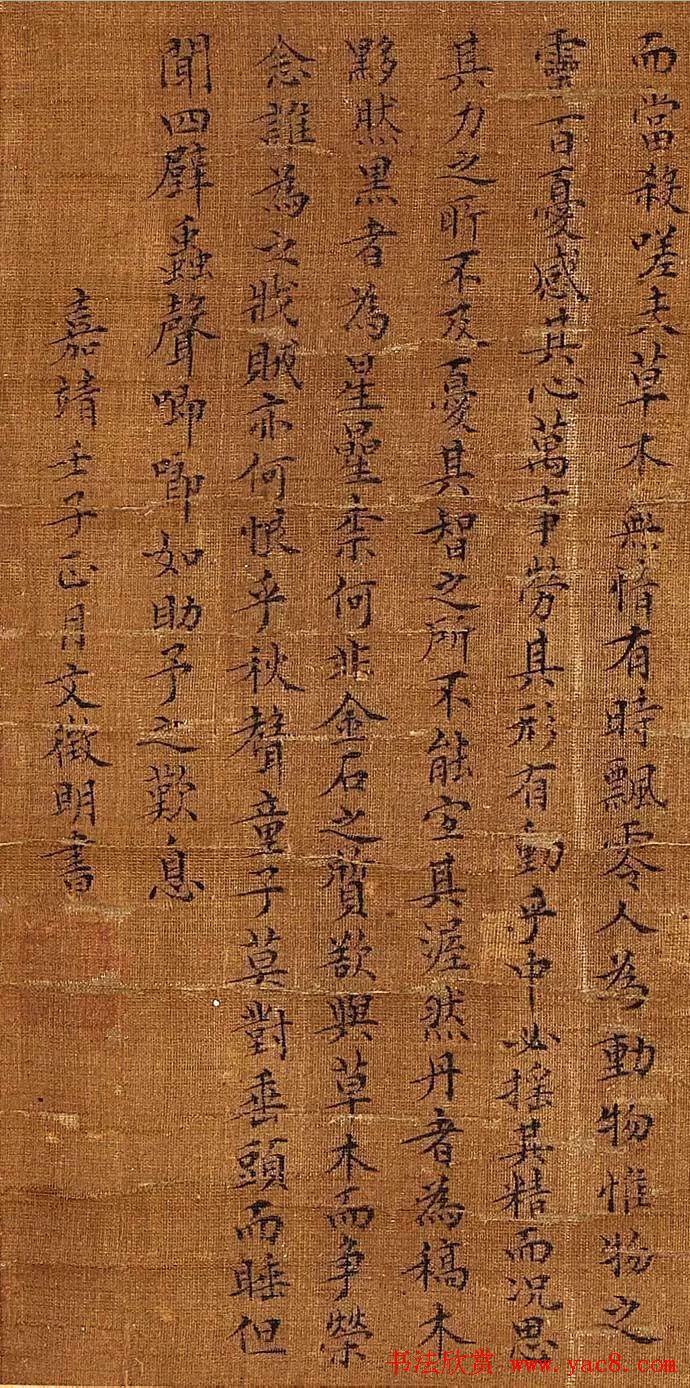 而當殺嗟夫草木無情有時飄零人為動物惟物之
靈百憂感其心萬事勞其形有動乎中必搖其精而況思
其力之所不及憂其智之所不能宜其渥然丹者為稿木
黟然黑者為星星柰何非金石之質欲與草木而争榮
念誰為之戕賊亦何恨乎秋聲童子莫對垂頭而睡但
聞四壁蟲聲唧唧如助予之歎息
嘉靖壬子正月文徵明書
书法欣赏 www.yac8.com